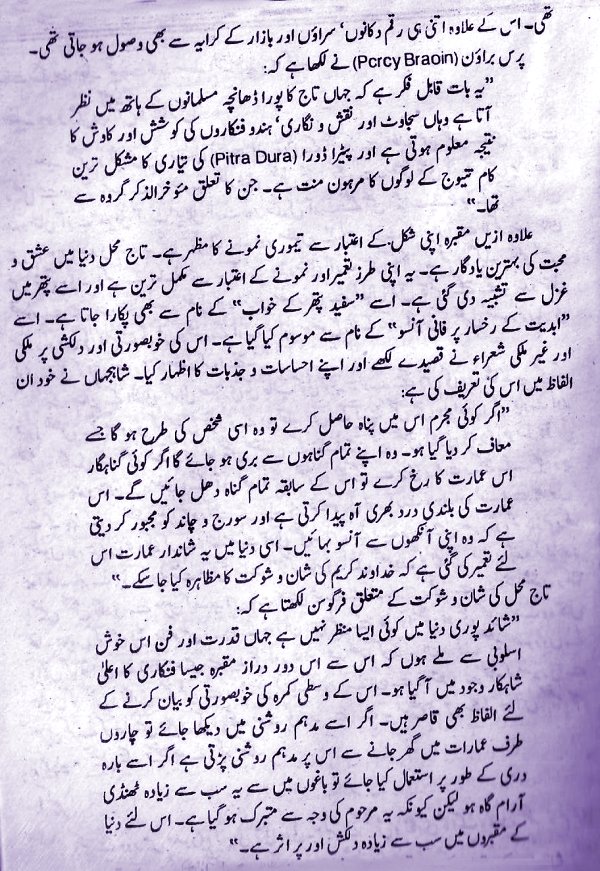 تھی۔ اس کے علاوہ اتنی ہی رقم دکانوں‘ سراؤں اور بازار کے کرایہ سے بھی وصول ہو جاتی تھی۔
پرس براؤن (Pcrcy Braoin) نے لکھا ہے کہ:
”یہ بات قابل فکر ہے کہ جہاں تاج کا پورا ڈھانچہ مسلمانوں کے ہاتھ میں نظر
آتا ہے وہاں سجاوٹ اور نقش و نگاری‘ ہندو فنکاروں کی کوشش اور کاوش کا
نتیجہ معلوم ہوتی ہے اور پیٹرا ڈورا (Pitra Dura) کی تیاری کا مشکل ترین
کام تنیوج کے لوگوں کا مرہون منت ہے۔ جن کا تعلق مئوخرالذکر گروہ سے
تھا۔“
علاوہ ازیں مقبرہ اپنی شکل کے اعتبار سے تیموری نمونے کا مظہر ہے۔ تاج محل دنیا میں عشق و
محبت کی بہترین یادگار ہے۔ یہ اپنی طرز تعمیر اور نمونے کے اعتبار سے مکمل ترین ہے اور اسے پتھر میں
غزل سے تشبیہ دی گئی ہے۔ اسے ”سفید پتھر کے خواب“ کے نام سے بھی پکارا جاتا ہے۔ اسے
”ابدیت کے رخسار پر فانی آنسو“ کے نام سے موسوم کیا گیا ہے۔ اس کی خوبصورتی اور دلکشی پر ملکی
اور غیر ملکی شعراء نے قصیدے لکھے اور اپنے احساسات و جذبات کا اظہار کیا۔ شاہجہاں نے خود ان
الفاظ میں اس کی تعریف کی ہے:
”اگر کوئی مجرم اس میں پناہ حاصل کرے تو وہ اسی شخص کی طرح ہو گا جسے
معاف کر دیا گیا ہو۔ وہ اپنے تمام گناہوں سے بری ہو جائے گا اگر کوئی گناہگار
اس عمارت کا رخ کرے تو اس کے سابقہ تمام گناہ دھل جائیں گے۔ اس
عمارت کی بلندی درد بھری آہ پیدا کرتی ہے اور سورج و چاند کو مجبور کر دیتی
ہے کہ وہ اپنی آنکھوں سے آنسو بہائیں۔ اسی دنیا میں یہ شاندار عمارت اس
لئے تعمیر کی گئی ہے کہ خداوند کریم کی شان و شوکت کا مظاہرہ کیا جا سکے۔“
تاج محل کی شان و شوکت کے متعلق فرگوسن لکھتا ہے کہ:
”شائد پوری دنیا میں کوئی ایسا منظر نہیں ہے جہاں قدرت اور فن اس خوش
اسلوبی سے ملے ہوں کہ اس سے اس دور دراز مقبرہ جیسا فنکاری کا اعلیٰ
شاہکار وجود میں آ گیا ہو۔ اس کے وسطی کمرہ کی خوبصورتی کو بیان کرنے کے
لئے الفاظ بھی قاصر ہیں۔ اگر اسے مدہم روشنی میں دیکھا جائے تو چاروں
طرف عمارات میں گھر جانے سے اس پر مدہم روشنی پڑتی ہے اگر اسے بارہ
دری کے طور پر استعمال کیا جائے تو باغوں میں سے یہ سب سے زیادہ ٹھنڈی
آرام گاہ ہو لیکن کیونکہ یہ مرحوم کی وجہ سے متبرک ہو گیا ہے۔ اس لئے دنیا
کے مقبروں میں سب سے زیادہ دلکش اور پر اثر ہے۔“